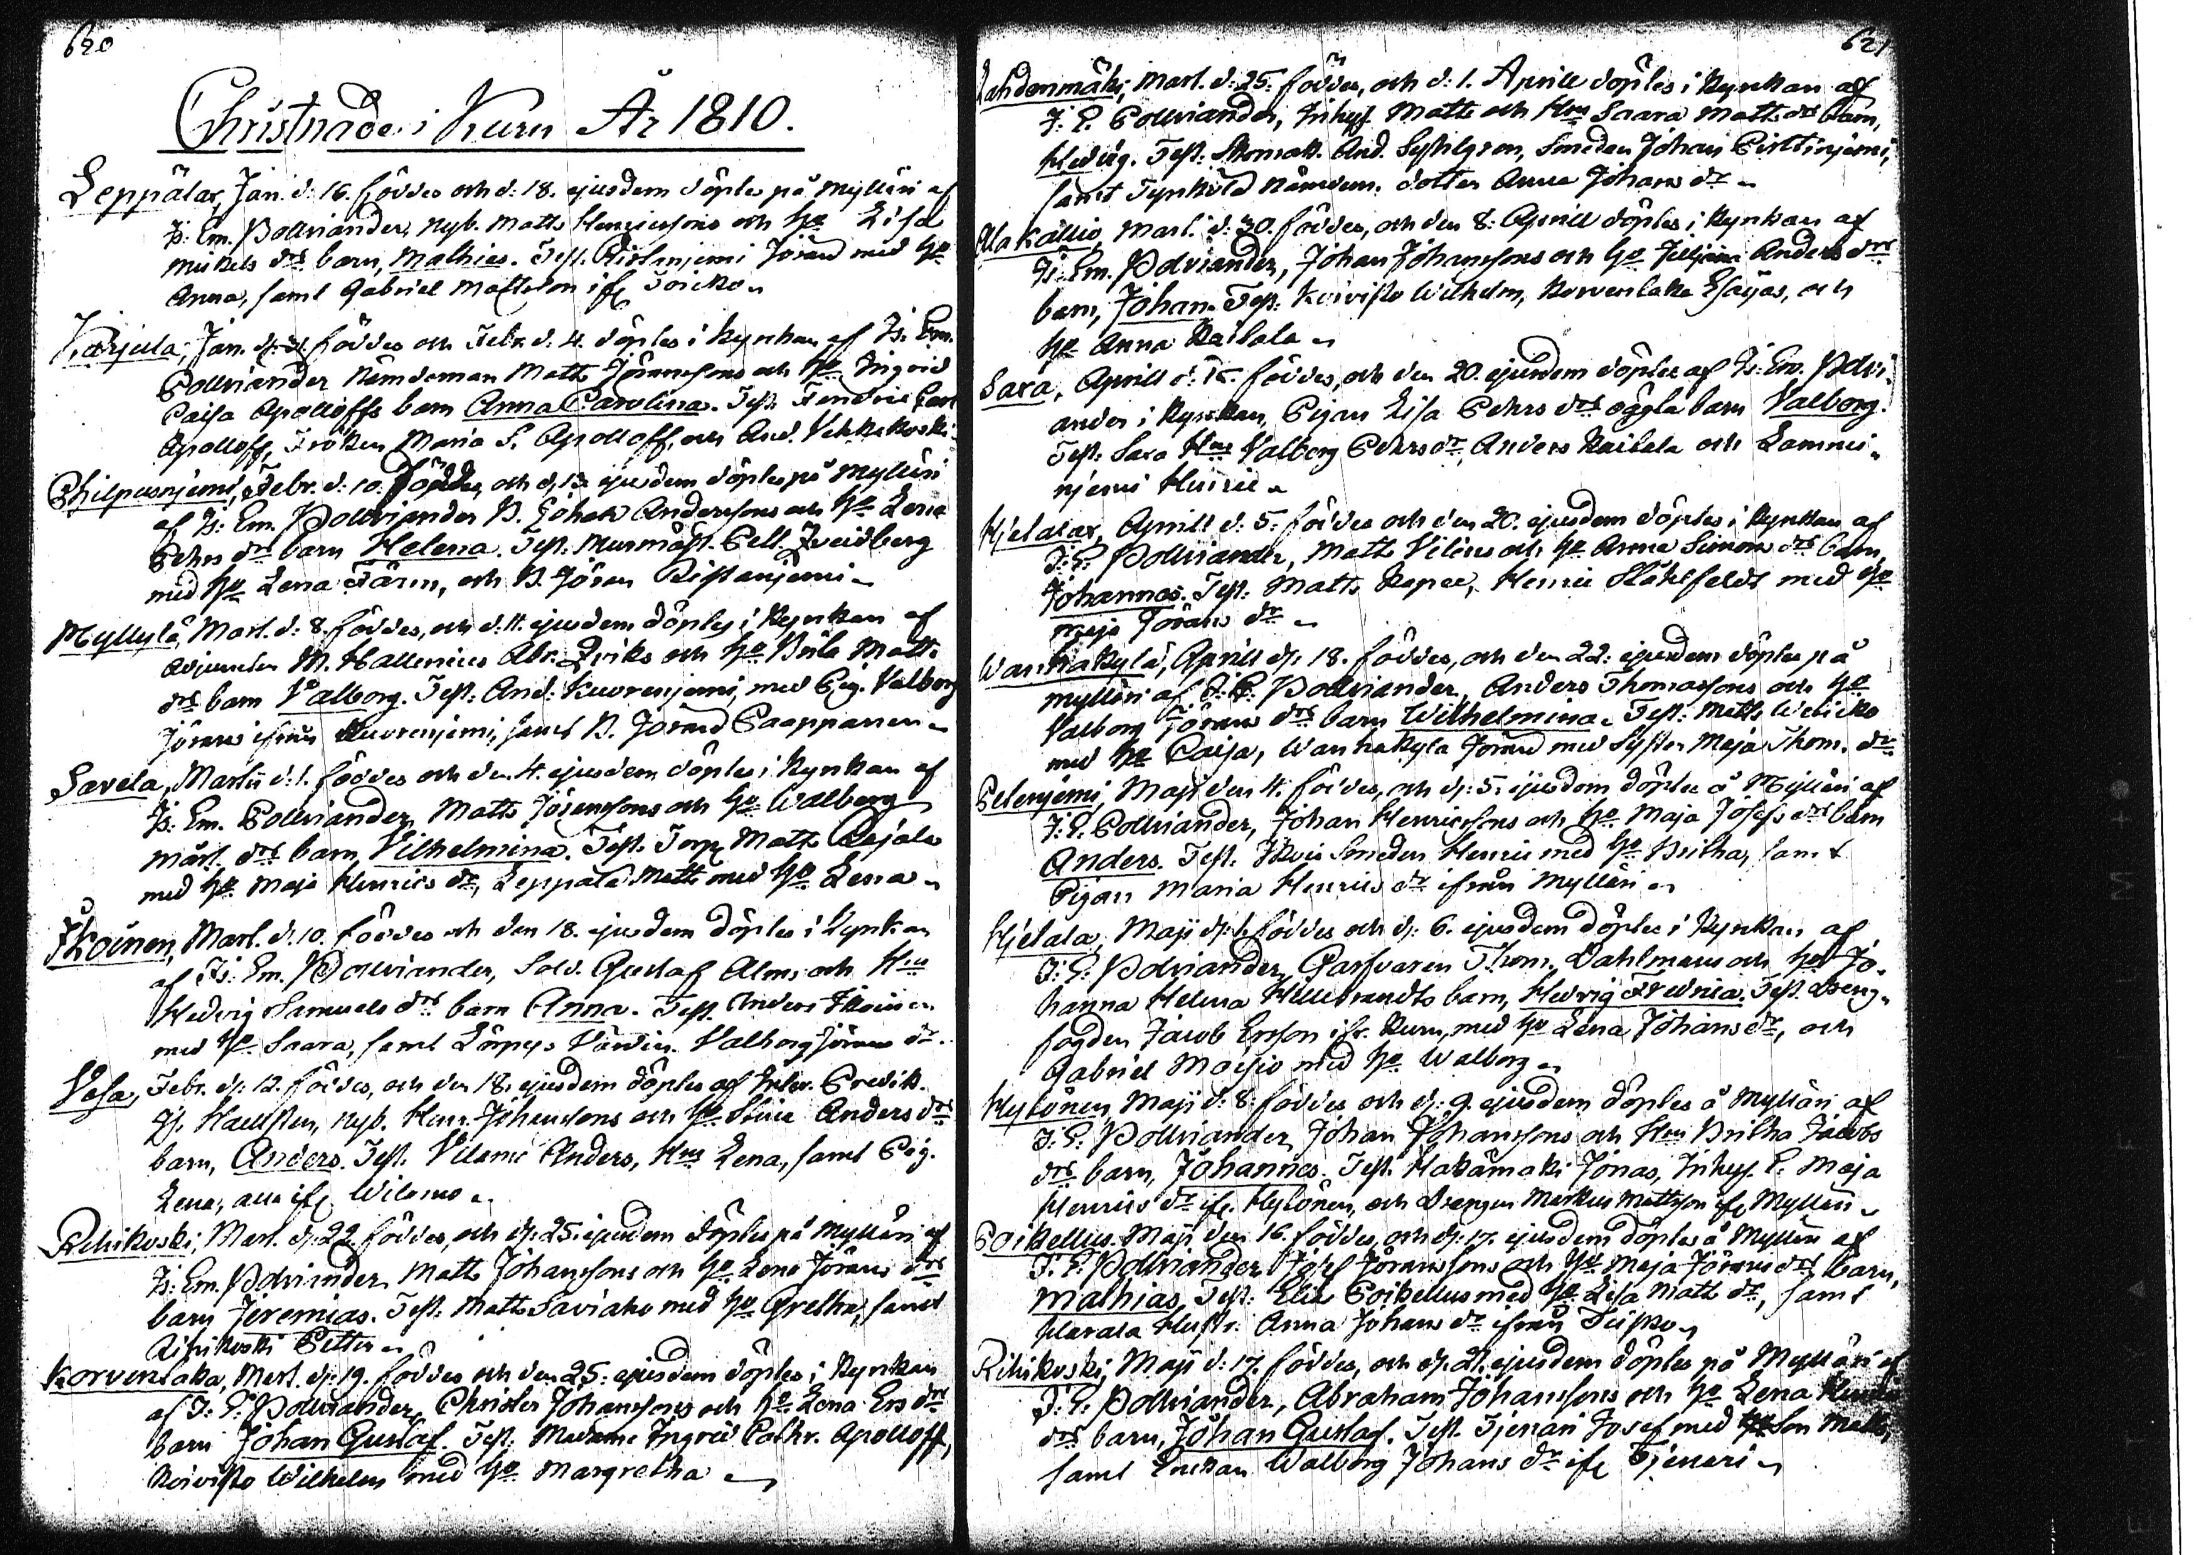 620
Christnade i Kuru År 1810.
Leppälax, Jan. d: 16. föddes och d: 18. ejusdem döptes på Mylläri af
Is: Em. Polviander, Nyb. Matts Henricssons och ho Lisa
Mickels drs barn, Mathias. Test. Ristinjemi Jöran med ho
Anna, samt Gabriel Mattsson ifr
Karjula, Jan. d: 31. föddes och Febr. d. 4. döptes i Kyrkan af Is. Em.
Polviander Nämdeman Matts Jöranssons och ho Ingrid
Caisa Apolloffs barn Anna Carolina. Test. Fendric Carl
Apolloff, Fröken Maria S. Apolloff, och And. Vehkakoski
Philpusnjemi, Febr. d: 10. Föddes, och d, 12. ejusdem döptes på Mylläri
af Is: Em. Polviander B. Johan Anderssons och ho Lena
Pehrs drs barn Helena. Test. Murmäst. Pell. Zveidberg
med ho Lena Färm, och B. Jöran Ristanjemi
Myllylä, Mart. d: 8. föddes, och d: 11. ejusdem döptes i Kyrkan af
Adjuncten M. Hallenius Abr. Eriks och ho Brita Matts
drs barn Valborg. Test. And: Kuorenjemi, med Pig. Valborg
Jörans ifrån Kuorenjemi, samt B. Jöran Paappanen
Savela, Martii d: 1. föddes och den 4. ejusdem döptes i Kyrkan af
Is: Em. Polviander, Matts Jöranssons och ho Walborg
Mårt. drs barn, Vilhelmina. Test. Torp. Matts Pajala
med ho Maja Henrics dr, Leppälä Matts med ho Lena
Ikoinen, Mart. d. 10. föddes och den 18. ejusdem döptes i Kyrkan
af Is: Em. Polviander, Sold. Gustaf Alms och Hus
Hedvig Samuels drs barn Anna. Test. Anders Ikoinen
med ho Saara, samt Valborg Jörans dr
Vesa, Febr. d: 12. föddes, och den 18. ejusdem döptes af Predik.
Haellsten, Nyb. Henr. Johanssons och ho Stina Anders drs
barn, Anders. Test. Vilamo Anders, Hus Lena, samt Pig.
Lena, alla ifr Wilamo
Riihikoski, Mart. d: 22. föddes, och d: 25. ejusdem döptes på Mylläri af
Is: Em. Polviander Matts Johanssons och ho Lena Jörans drs
barn Jeremias. Test. Matts Saviaho med ho Gretha, samt
Riihikoski Petter
Korvenlaka, Mart. d: 19. föddes och den 25. ejusdem döptes i Kyrkan
af I: E: Polviander, Christer Johanssons och ho Lena Ers drs
barn Johan Gustaf. Test: Madame Ingrid Cathr. Apolloff,
Koivisto Wilhelm med ho Margretha
621
Lahdenmäki, Mart. d: 25. föddes, och d: 1. Aprill döptes i Kyrkan af
I. E. Polviander, Inhys. Matts och Hus Saara Matts drs barn,
Hedvig. Test: Skomak. And. Sysilgren, Smeden Johan Pirttinjemi,
samt Tynkilä Nämdem. dotter Anna Johans dr
Alakallio, Mart. d: 30. föddes, och den 8. Aprill döptes i Kyrkan af
Is: Em. Polviander, Johan Johanssons och ho Juliana Anders drs
barn, Johan. Test: Koivisto Wilhelm, Korvenlaka Esajas, och
ho Anna Kaibala
Sara, Aprill d: 15. föddes, och den 20. ejusdem döptes af Is. Em. Polvi-
ander i Kyrkan, Pigan Lisa Pehrs drs oägta barn Valborg.
Test. Sara Hus Valborg Pehrs dr, Anders Kaibala och Lammi-
njemi Henric
Hjelalax, Aprill d: 5. föddes och den 20. ejusdem döptes i Kyrkan af
I: E: Polviander, Matts Vilenii och ho Anna Simons drs barn,
Johannes. Test: Matts Kapee, Henric Ståhlfeldt med ho
Maja Jörans dr
Wanhakylä, Aprill d: 18. föddes, och den 22. ejusdem döptes på
Mylläri af I: E: Polviander, Anders Thomassons och ho
Valborg Jörans drs barn Wilhelmina. Test: Matts
med ho Caisa, Wanhakylä Jöran med Syster Maja Thom. dr
Pelenjemi, Maji den 4. föddes, och d: 5. ejusdem döptes å Mylläri af
I: E: Polviander, Johan Henricssons och ho Maja Josefs drs barn
Anders. Test. Smeden Henric med ho Britha, samt
Pigan Maria Henrics dr ifrån Mylläri
Hjelala, Maji d: föddes och d: 6. ejusdem döptes i Kyrkan af
I: E: Polviander, Garfvaren Thom. Dahlmans och ho Jo-
hanna Helena Hillebrandts barn, Hedvig Fredrica. Test. Dreng-
fogden Jacob Ersson ifr. Kuru, med ho Lena Johans dr, och
Gabriel Maijio med ho Walborg
Hylönen, Maji d: 8: föddes och d: 9. ejusdem döptes å Mylläri af
I: E: Polviander Johan Johanssons och Hus Britha Jacobs
drs barn, Johannes. Test. Hakamäki Jonas, Inhys. P. Maja
Henrics dr ifr. Hylönen, och Drengen Markus Mattsson ifr Mylläri
Poikellus Maji den 16. föddes, och d: 17. ejusdem döptes å Mylläri af
I: E: Polviander Josef Jöranssons och ho Maja Jörans drs barn,
Mathias, Test: Elias Poikellus med ho Lisa Matts dr, samt
Harala Hustr. Anna Johans dr ifrån
Riihikoski, Maji d: 17. föddes, och d: 21. ejusdem döptes på Mylläri af
I: E: Polviander, Abraham Johanssons och ho Lena Henrics
drs barn, Johan Gustaf. Test. Tjenari Josef med Son Matts,
samt Enkan Walborg Johans dr ifr Tjenari